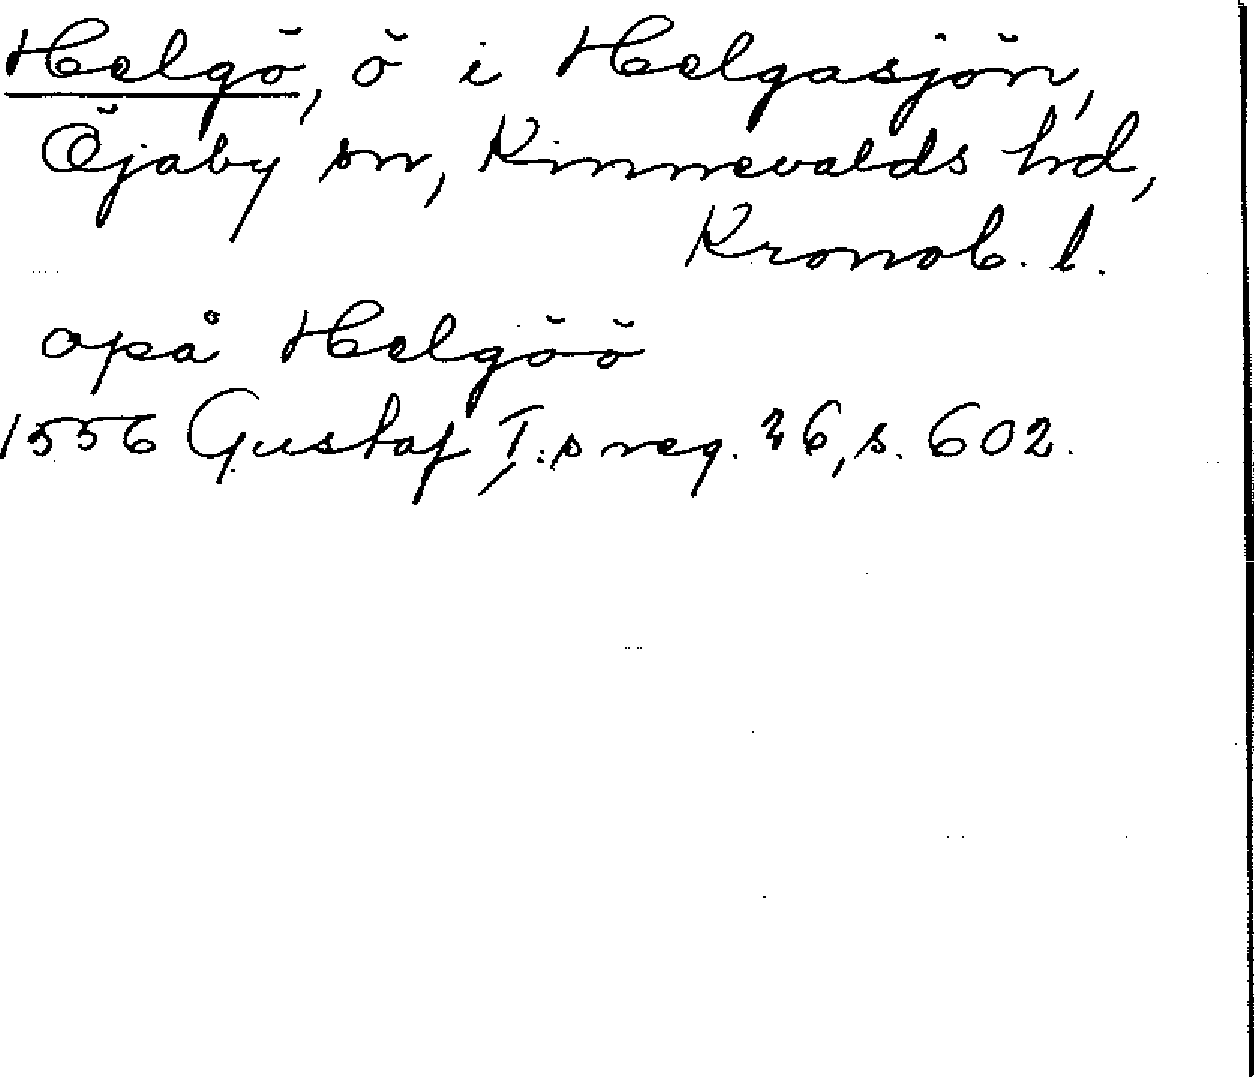 Helgö, ö i Helgasjön,
Öjaby sn, Kinnevalds hd,
Kronob. l.
opå Helgöö
1556 Gustaf I:s reg. 26, s. 602.